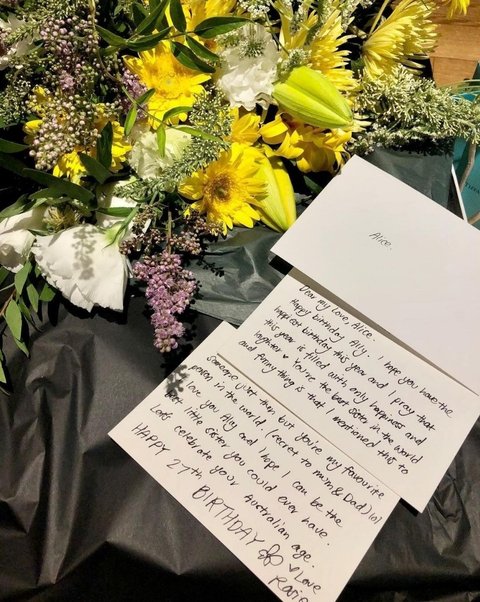 Alice.
Dear my love, Alice.
Happy birthday Ally. I hope you have the
happiest birthday this year and I pray that
this year is filled with only happiness and
laughter ♥ You're the best sister in the world
and funny thing is that I mentioned this to
someone just then but you're my favourite
person in the world (secret to mum & Dad) lol
I love you Ally and I hope I can be the
best little sister you could ever have.
Let's celebrate your Australian age.
HAPPY 27th BIRTHDAY
♥ Love